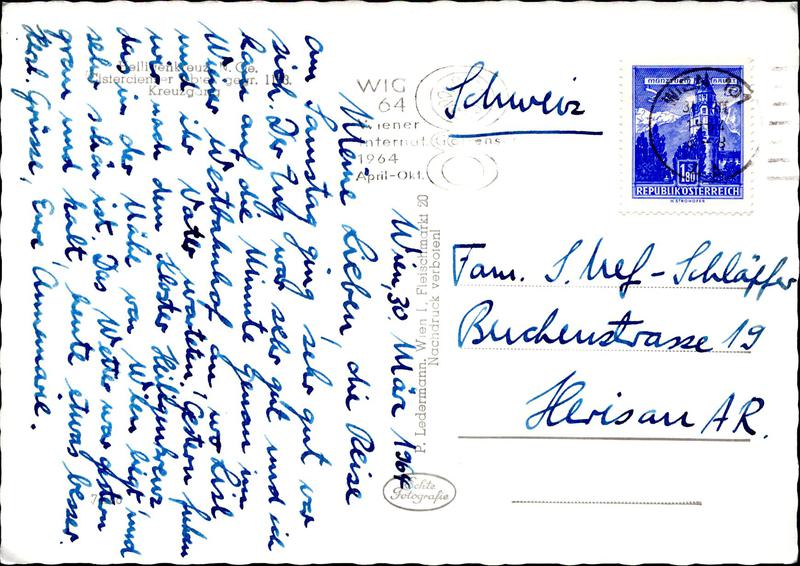 Wien, 30. März 1964
Meine Lieben, die Reise
am Samstag ging sehr gut vor
sich. Der Zug war sehr gut und ich
kam auf die Minute genau im
Wiener Westbahnhof an, wo Lisl
und ihr Vater warteten. Gestern fuhren
wir nach dem Kloster Heiligenkreuz
das in der Nähe von Wien liegt und
sehr schön ist. Das Wetter war gestern
grau und kalt, heute etwas besser.
Herzl. Grüsse, Eure Annemarie.
Heiligenkreuz, N.-Oe.
Kreuzgang
P. Ledermann, Wien I, Fleischmarkt 20
Nachdruck verboten!
Echte
Fotografie
WIG
64
Wiener
Internat.
1964
April-Okt.
WIEN
1.80
REPUBLIK ÖSTERREICH
H. STROHOFER
Schweiz
Fam. S. Nef-Schläpfer
Buchenstrasse 19
Herisau AR.